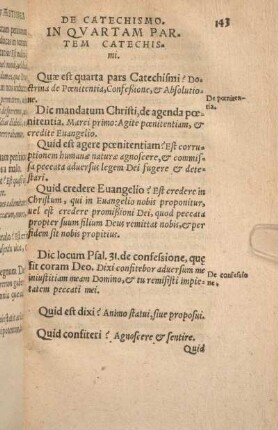 DE CATECHISMO. 143
IN QVARTAM PAR-
TEM CATECHIS-
mi.
Quæ est quarta pars Catechismi? Do-
ctrina de Pœnitentia, Confeſsione, & Absolutio-
ne.
De pœniten-
tia.
Dic mandatum Christi, de agenda pœ-
nitentia. Marci primo: Agite pœnitentiam, &
credite Euangelio.
Quid est agere pœnitentiam? Est corru-
ptionem humanæ naturæ agnoscere, & commiſ-
sa peccata aduersus legem Dei fugere & dete-
stari.
Quid credere Euangelio? Est credere in
Christum, qui in Euangelio nobis proponitur,
uel est credere promiſsioni Dei, quod peccata
propter suum filium Deus remittat nobis, & per
fidem sit nobis propitius.
Dic locum Psal. 31. de confessione, quæ
fit coram Deo. Dixi confitebor aduersum me
iniustitiam meam Domino, & tu remisisti impie-
tatem peccati mei.
De confeſsio
ne.
Quid est dixi? Animo statui, siue proposui.
Quid confiteri? Agnoscere & sentire.
Quid